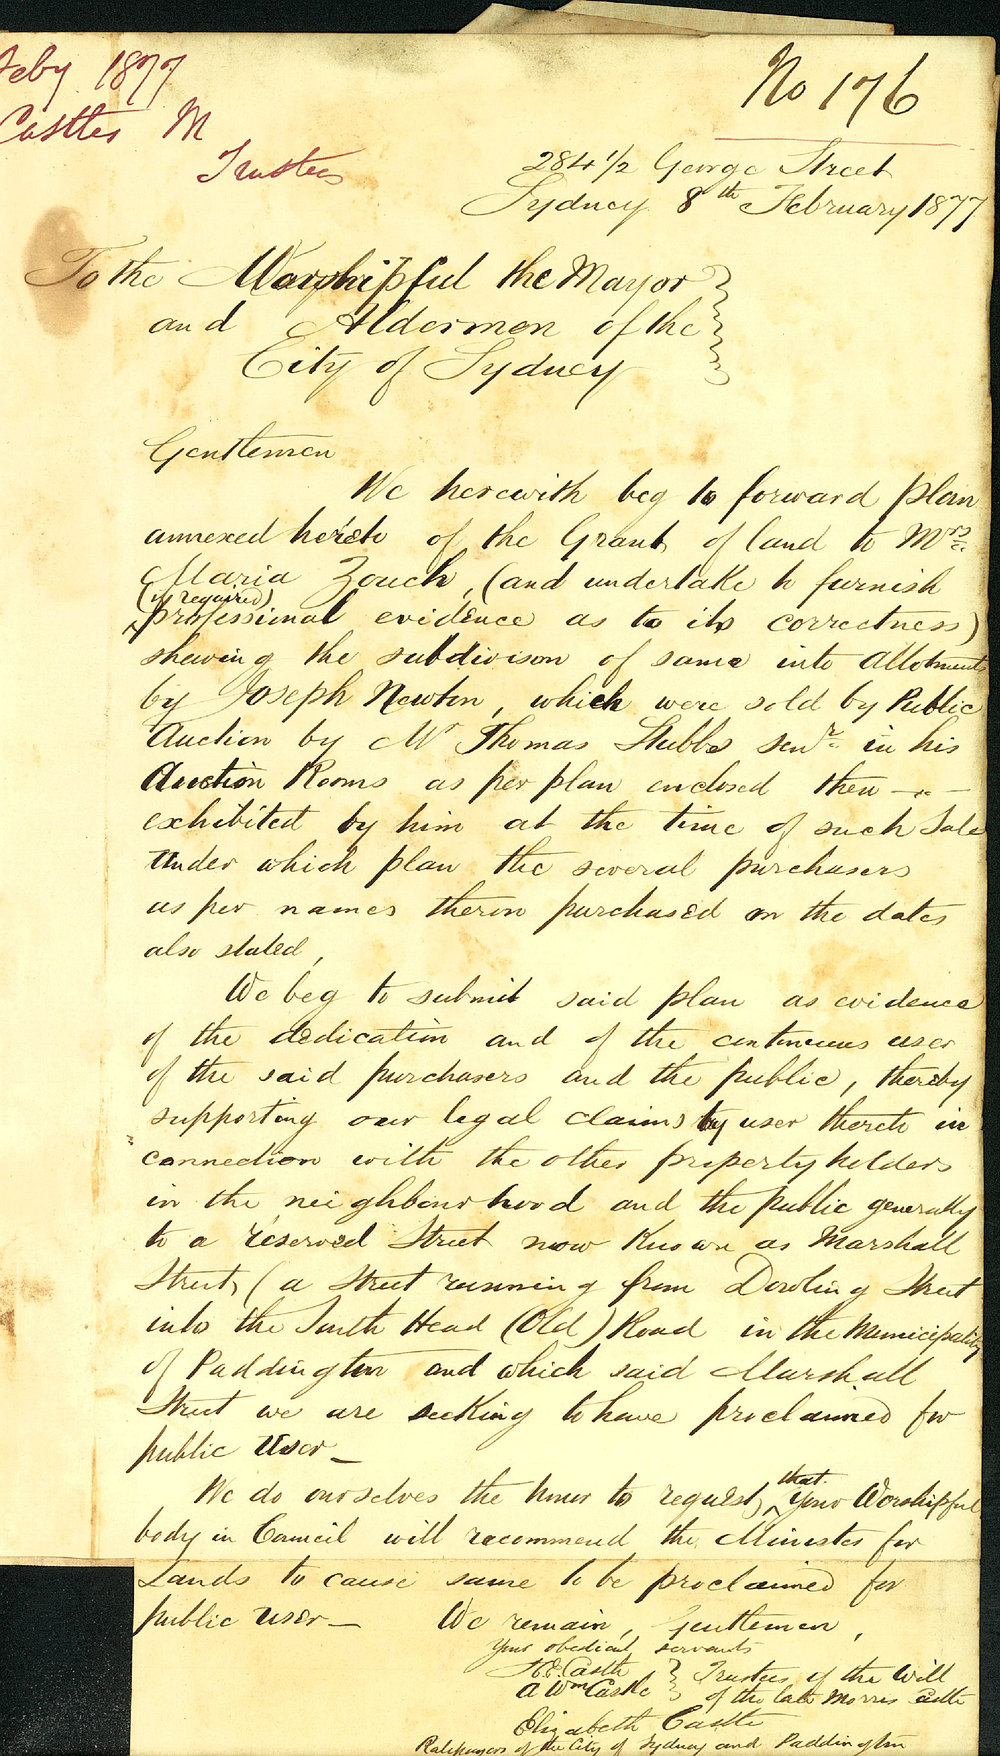 Feby 1877
Castles M
Trustees
No 176
284 1/2 George Street
Sydney 8th February 1877
To the Worshipful the Mayor
and Aldermen of the
City of Sydney
Gentlemen
We herewith beg to forward plan
annexed hereto of the Grant of land to Mrs
Maria Zouch, (and undertake to furnish
(if required)
professional evidence as to its correctness)
shewing the subdivison of same into allotments
by Joseph Newton, which were sold by Public
Auction by Mr Thomas Stubbs senr in his
Auction Rooms as per plan enclosed then —"—
exhibited by him at the time of such Sale
Under which plan the several purchasers
as per names theron purchased on the dates
also stated,
We beg to submit said plan as evidence
of the dedication and of the continuous user
of the said purchasers and the public, thereby
supporting our legal claims by user thereto in
connection with the other property holders
in the neighbourhood and the public generally
to a reserved Street now Known as Marshall
Street, (a Street running from Dowling Street
into the South Head (Old) Road in the Municipality
of Paddington and which said Marshall
Street we are seeking to have proclaimed for
public User —
We do ourselves the honor to request, that your Worshipful
body in Council will recommend the Minister for
Lands to cause same to be proclaimed for
public user — We remain, Gentlemen,
Your obedient servants
H E Castle } Trustees of the Will
A Wm Castle } of the late Morris Castle
Elizabeth Castle
Ratepayers of the City of Sydney and Paddington